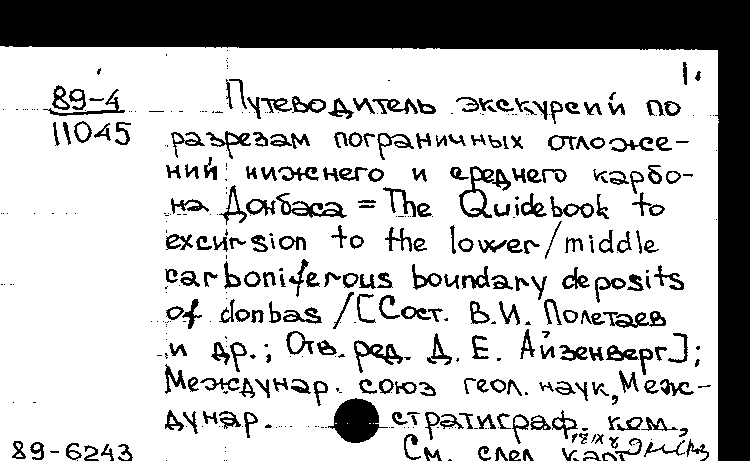 1.
89-4
11045
Путеводитель экскурсий по
разрезам пограничных отложе-
ний нижнего и среднего карбо-
на Донбаса = The Quidebook to
excursion to the lower/middle
carboniferous boundary deposits
of donbas / [Сост. В.И. Полетаев
и др.; Отв. ред. Д. Е. Айзенверг];
Междунар. союз геол. наук, Меж-
дунар. стратиграф. ком.,
89-6243
См. след. карт